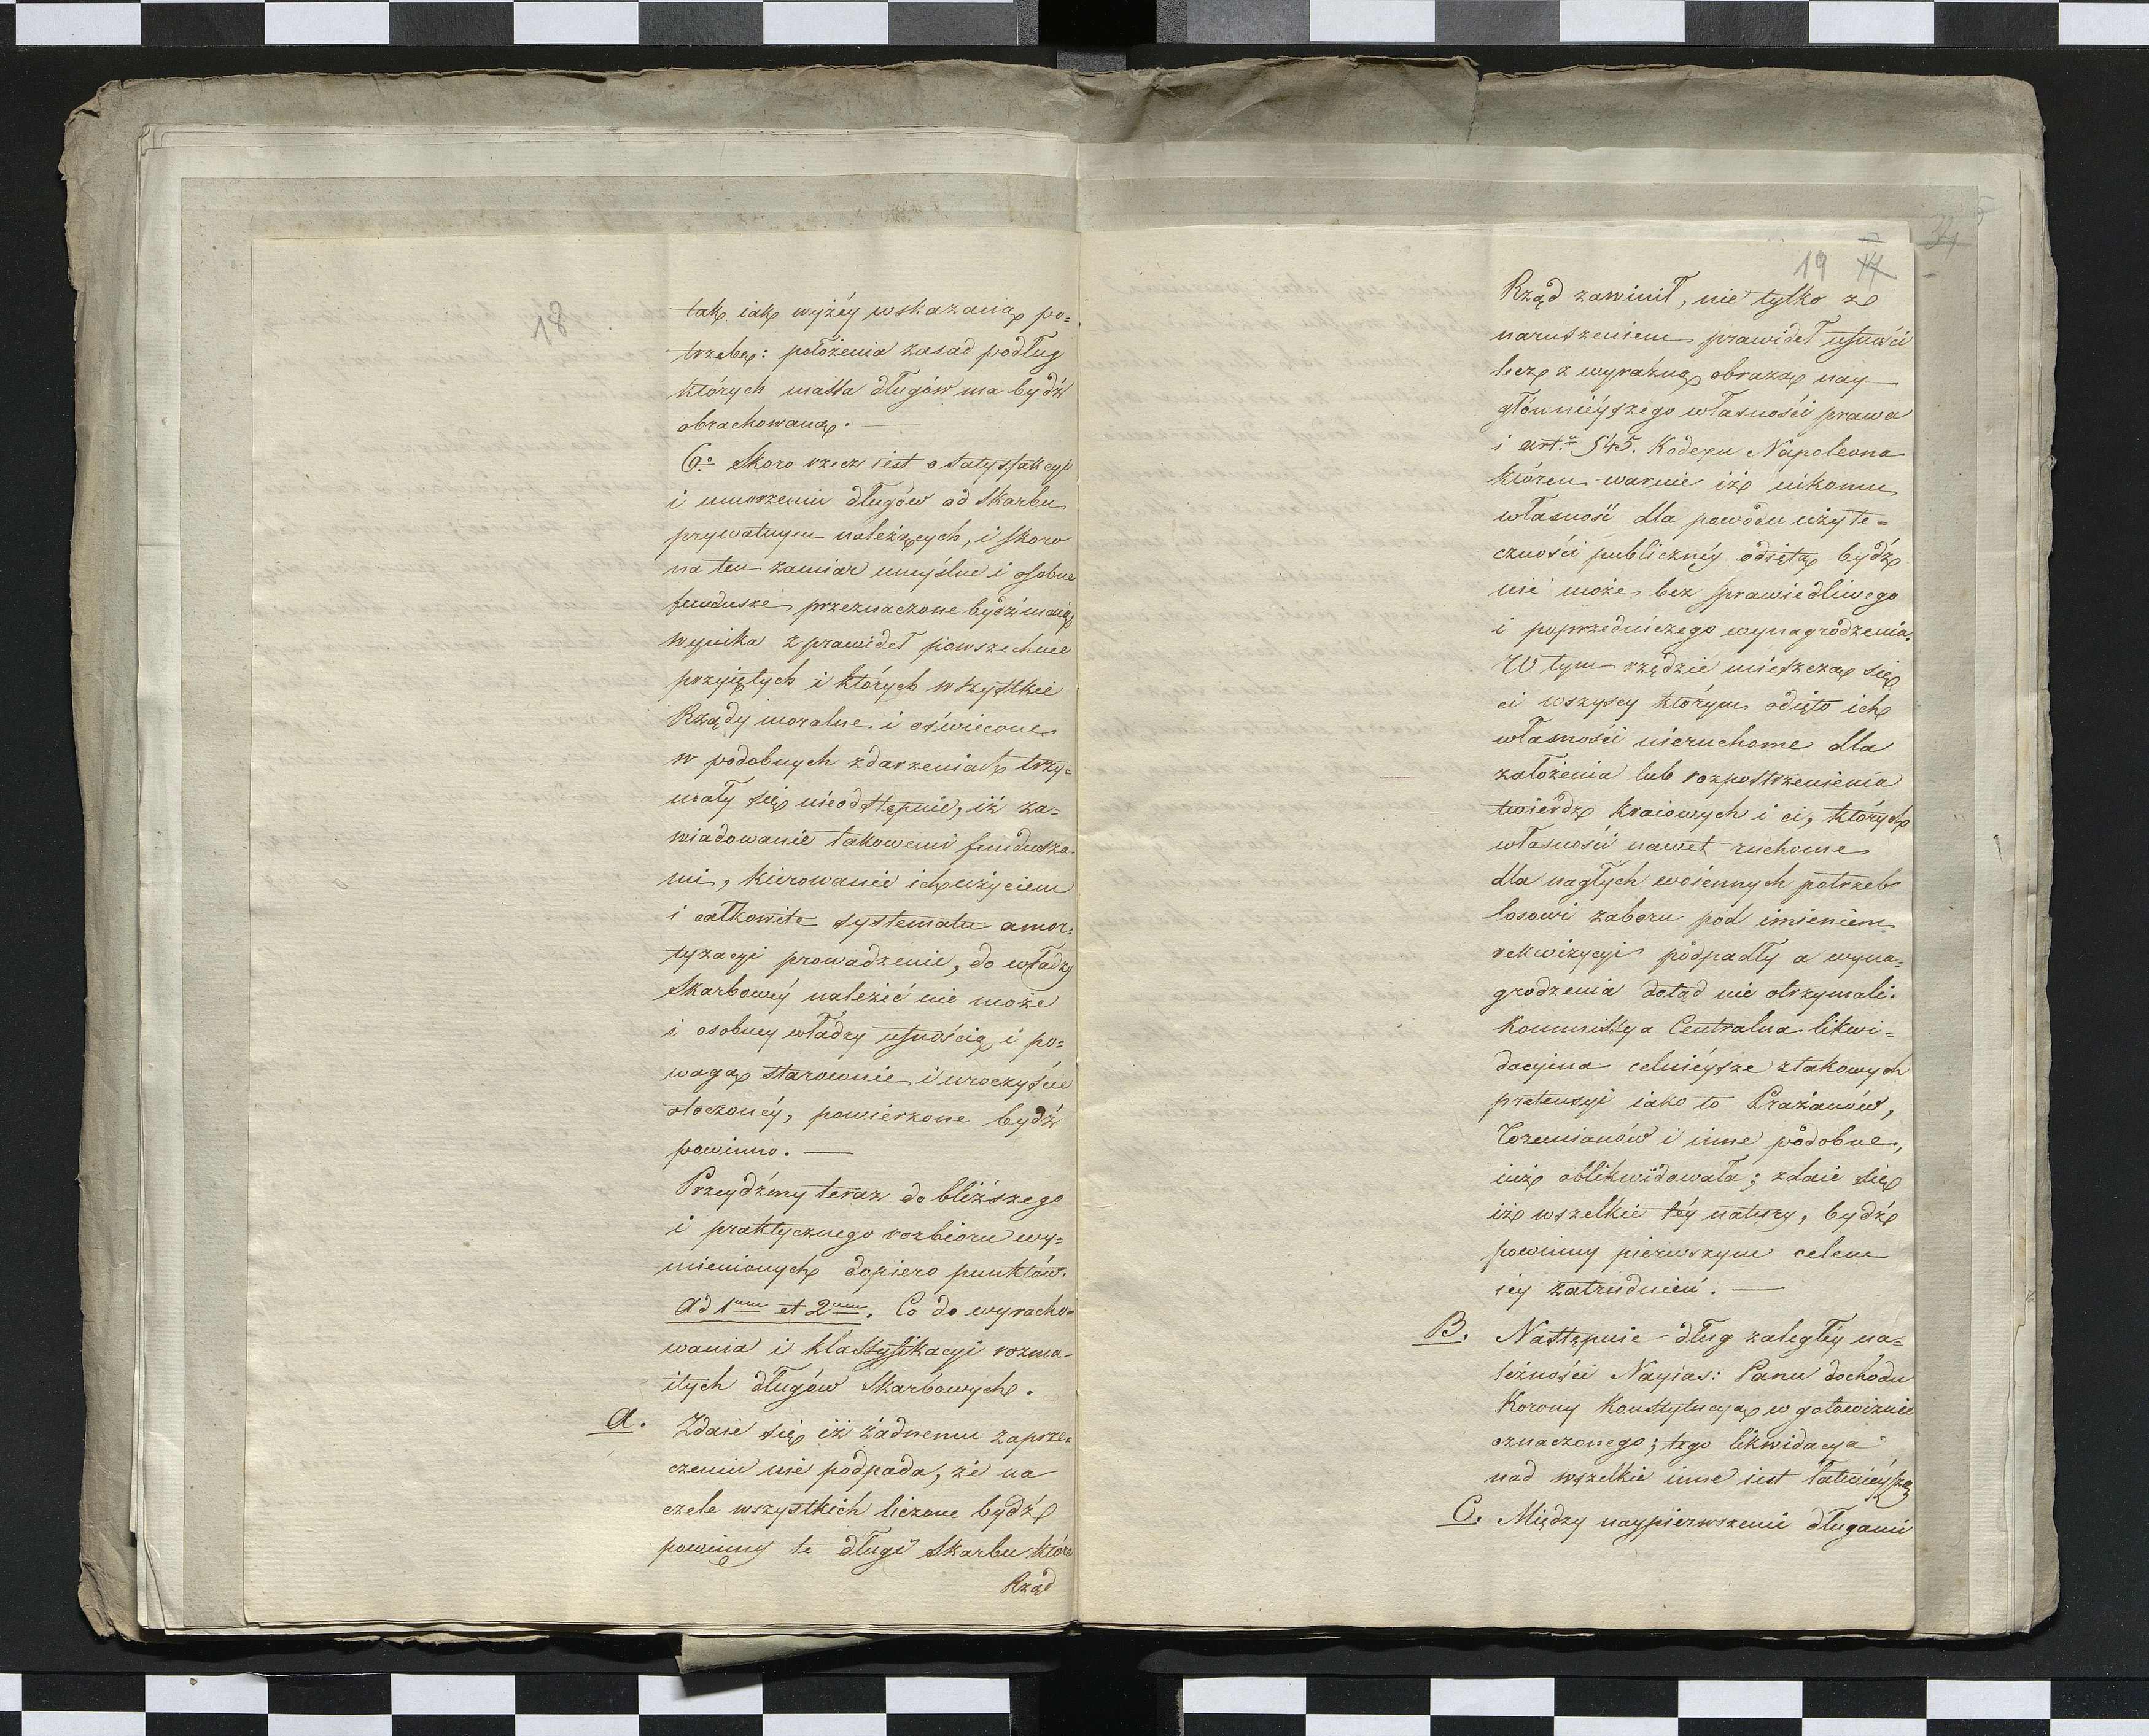 18
tak iak wyżéy wskazaną po=
trzebę: położenia zasad podług
których massa długów ma bydź
obrachowaną. —
6.o Skoro rzecz iest o satysfakcyi
i umorzeniu długów od Skarbu
prywatnym należących, i skoro
na ten zamiar umyślne i osobne
fundusze przeznaczone bydź maią
wynika z prawideł powszechnie
przyiętych i których wszystkie
Rządy moralne i oświecone
w podobnych zdarzeniach trzy=
mały się nieodstępnie, iż za=
wiadowanie takowemi fundusza=
mi, kierowanie ich użyciem
i całkowite systematu amor=
tyzacyi prowadzenie, do władzy
Skarbowéy należéć nie może
i osobney władzy ufnością i po=
wagą starownie i uroczyście
otoczonéy, powierzone bydź
powinno. —
Przeydźmy teraz do bliższego
i praktycznego rozbioru wy=
mienionych dopiero punktów.
Ad 1um et 2um. Co do wyracho=
wania i klassyfikacyi rozma-
itych długów Skarbowych.
A. Zdaie się iż żadnemu zaprze=
czeniu nie podpada, że na
czele wszystkich liczone bydź
powinny te długi Skarbu które
Rząd
34
19 17
Rząd zawinił, nie tylko z
naruszeniem prawideł ufności
lecz z wyraźną obrazą nay-
główniéyszego własności prawa
i arto. 545. Kodexu Napoleona
któren warnie iż nikomu
własność dla powodu użyte=
czności publicznéy odiętą bydź
nie może, bez sprawiedliwego
i poprzedniczego wynagrodzenia.
W tym rzędzie mieszczą się
ci wszyscy którym odięto ich
własności nieruchome dla
założenia lub rozpostrzenienia
twierdz kraiowych i ci, których
własności nawet ruchome
dla nagłych woiennych potrzeb
losowi zaboru pod imieniem
rekwizycyi podpadły a wyna=
grodzenia dotąd nie otrzymali.
Kommissya Centralna likwi=
dacyina celniéysze z takowych
pretensyi iako to Prażanów,
Torunianów i inne podobne,
iuż oblikwidowała; zdaie się
iż wszelkie téy natury, bydź
powinny pierwszym celem
iéy zatrudnień. —
B. Następnie dług zaległéy na=
leżności Nayias: Panu dochodu
Korony Konstytucyą w gotowiznie
oznaczonego; tego likwidacya
nad wszelkie inne iest łatwiéyszą
C. Między naypierwszemi długami